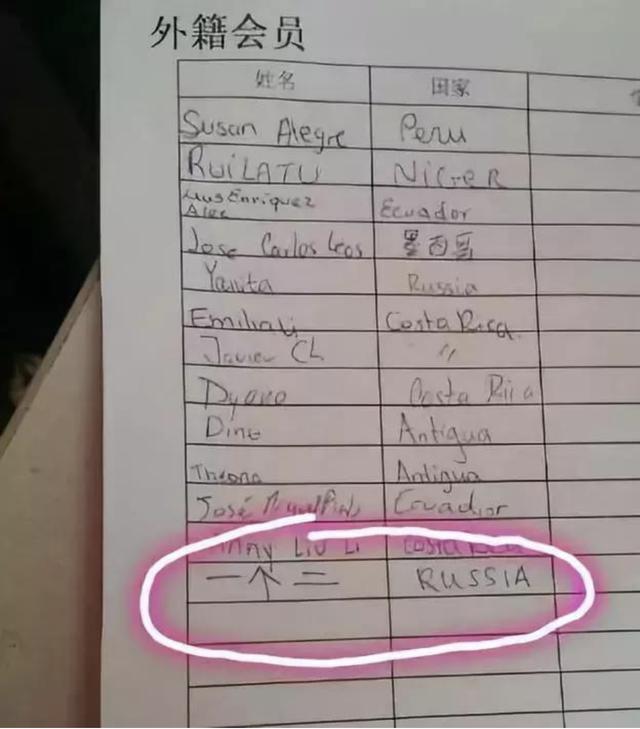 外籍会员
姓名 国家
Susan Alegre Peru
RUiLATU NiGeR
Enriquez
Alec Ecuador
Jose Carlos Leos 墨西哥
Russia
Costa Rica
Javier CL 〃
Costa Rica
Antigua
Antigua
José Ecuador
Liu Li Costa Rica
一个二 RUSSIA